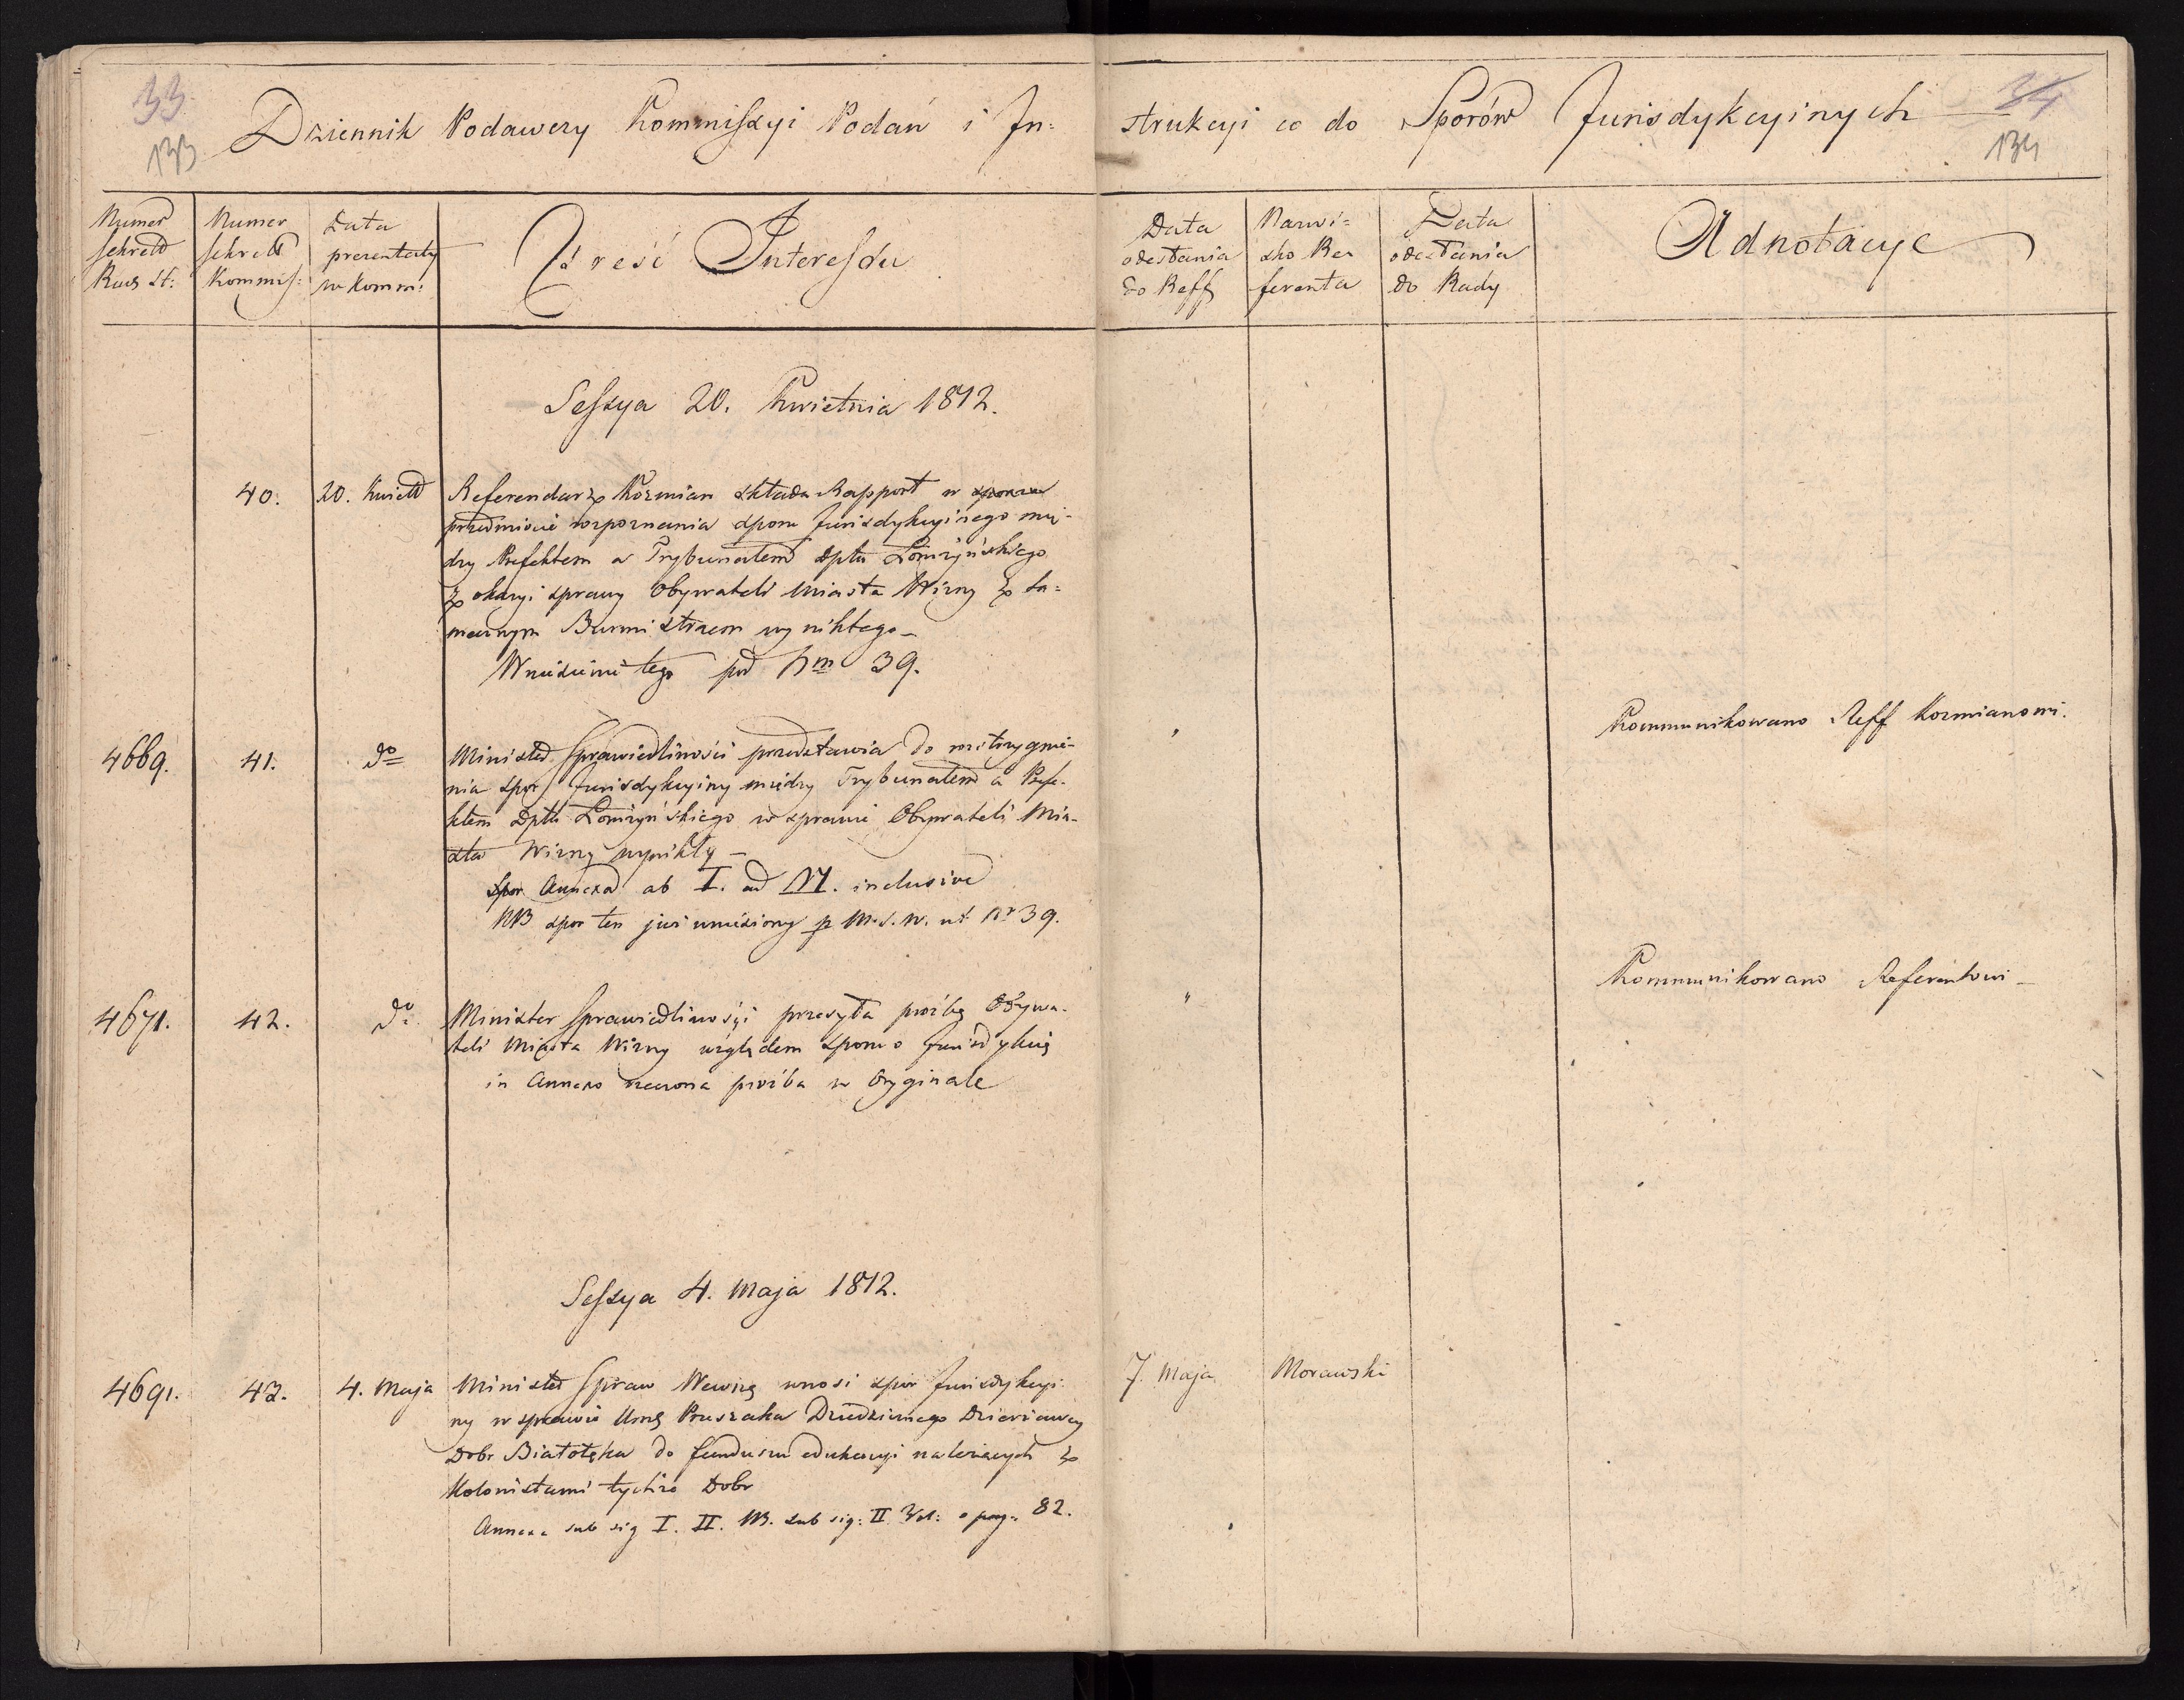 33.
133
Dziennik Podawczy Kommissyi Podań i In=
strukcyi co do Sporów Jurisdykcyinych
34
134
Numer
Sekret
Rady St:
Numer
Sekret
Kommis:
Data
prezentaty
w Komm:
Treść Interessu
Data
odesłania
do Reff
Nazwi=
sko Re=
ferenta
Data
odesłania
do Rady
Adnotacye
Sessya 20. Kwietnia 1812.
40.
20. Kwiet
Referendarz Kozmian składa Rapport w sporze
przedmiocie rozpoznania sporu Jurisdykcyinego mię-
dzy Prefektem a Trybunałem Dptu Łomżyńskiego
z okazyi sprawy Obywateli Miasta Wizny z ta=
mecznym Burmistrzem wynikłego
Wniesienie tego pod Nm 39.
4669.
41.
do
Minister Sprawiedliwości przedstawia do rostrzygnie-
nia spor Jurisdykcyiny między Trybunałem a Prefe-
ktem Dptu Łomżyńskiego w sprawie Obywateli Mia-
sta Wizny wynikły
Spor Annexa ab I. ad VI. inclusive
NB spor ten już wniesiony p M.S.W. ut Nr 39.
Kommunikowano Reff Kozmianowi.
4671.
42.
do
Minister Sprawiedliwości przesyła prośbę Obywa-
teli Miasta Wizny względem sporu o Jurisdykcię
in Annexo rzeczona prośba w Oryginale
Kommunikowano Referentowi
Sessya 4. Maja 1812.
4691.
43.
4. Maja
Minister Spraw Wewnę wnosi spór Jurisdykcyi
ny w sprawie Pruszaka Dziedzicznego Dzierżawcy
Dobr Białołęka do funduszu edukacyi należących z
Kolonistami tychże Dobr
Annexa sub sig I. II. NB. sub sig: II Vol: o pag: 82.
7. Maja
Morawski